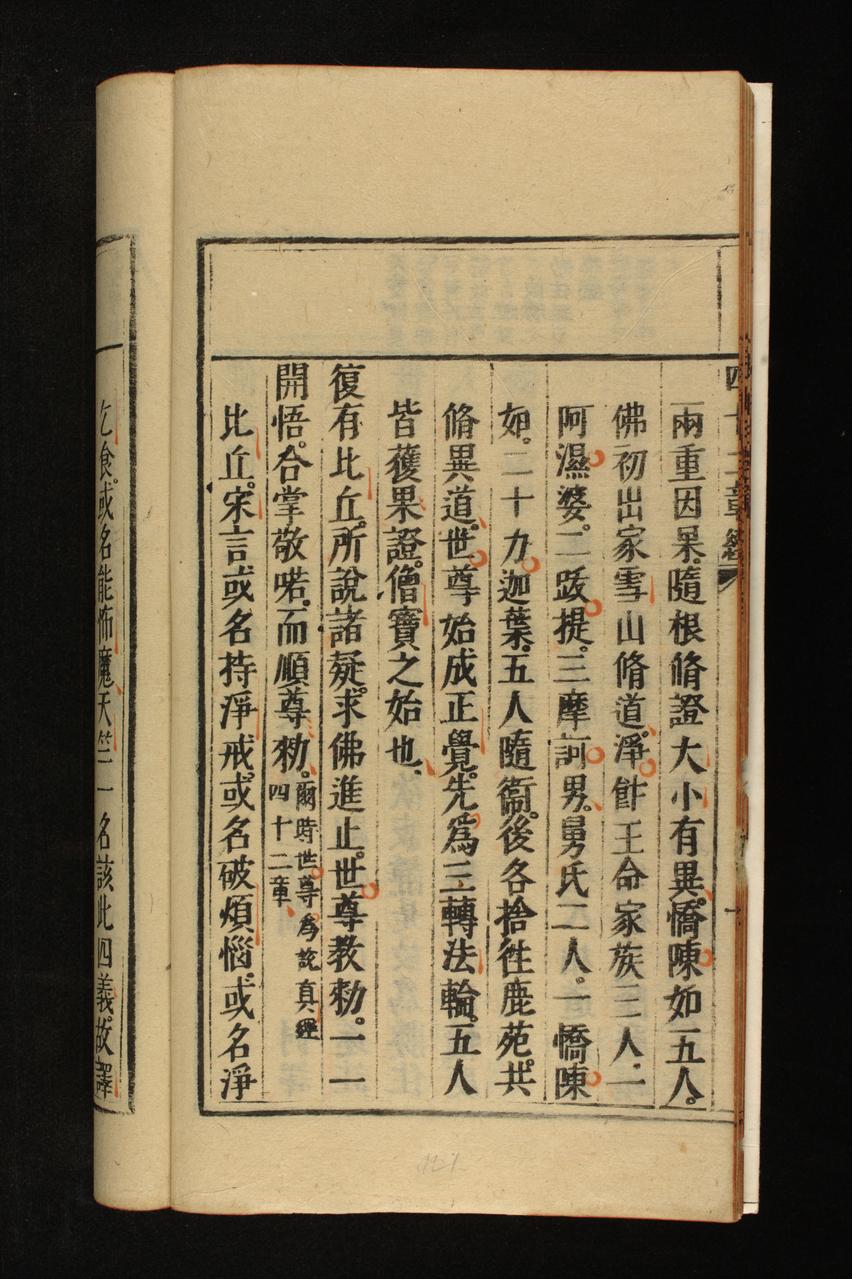 四十二章經
兩重因果。隨根脩證大小有異。憍陳如五人。
佛初出家雪山脩道、淨飰王命家族三人、一
阿濕婆。二䟦提。三摩訶男。舅氏二人。一憍陳
如。二十力迦葉。五人隨衛。後各捨徃鹿苑。共
脩異道。世尊始成正覺。先為三轉法輪。五人
皆𫉬果證。僧寶之始也、
復有比丘。所說諸疑。求佛進止。世尊教勑。一一
開悟。合掌敬喏。而順尊勑。爾時世尊為說真經四十二章
比丘。宋言或名持淨戒。或名破煩惱。或名淨
乞食。或名能怖魔、天竺一名該此四義。故譯